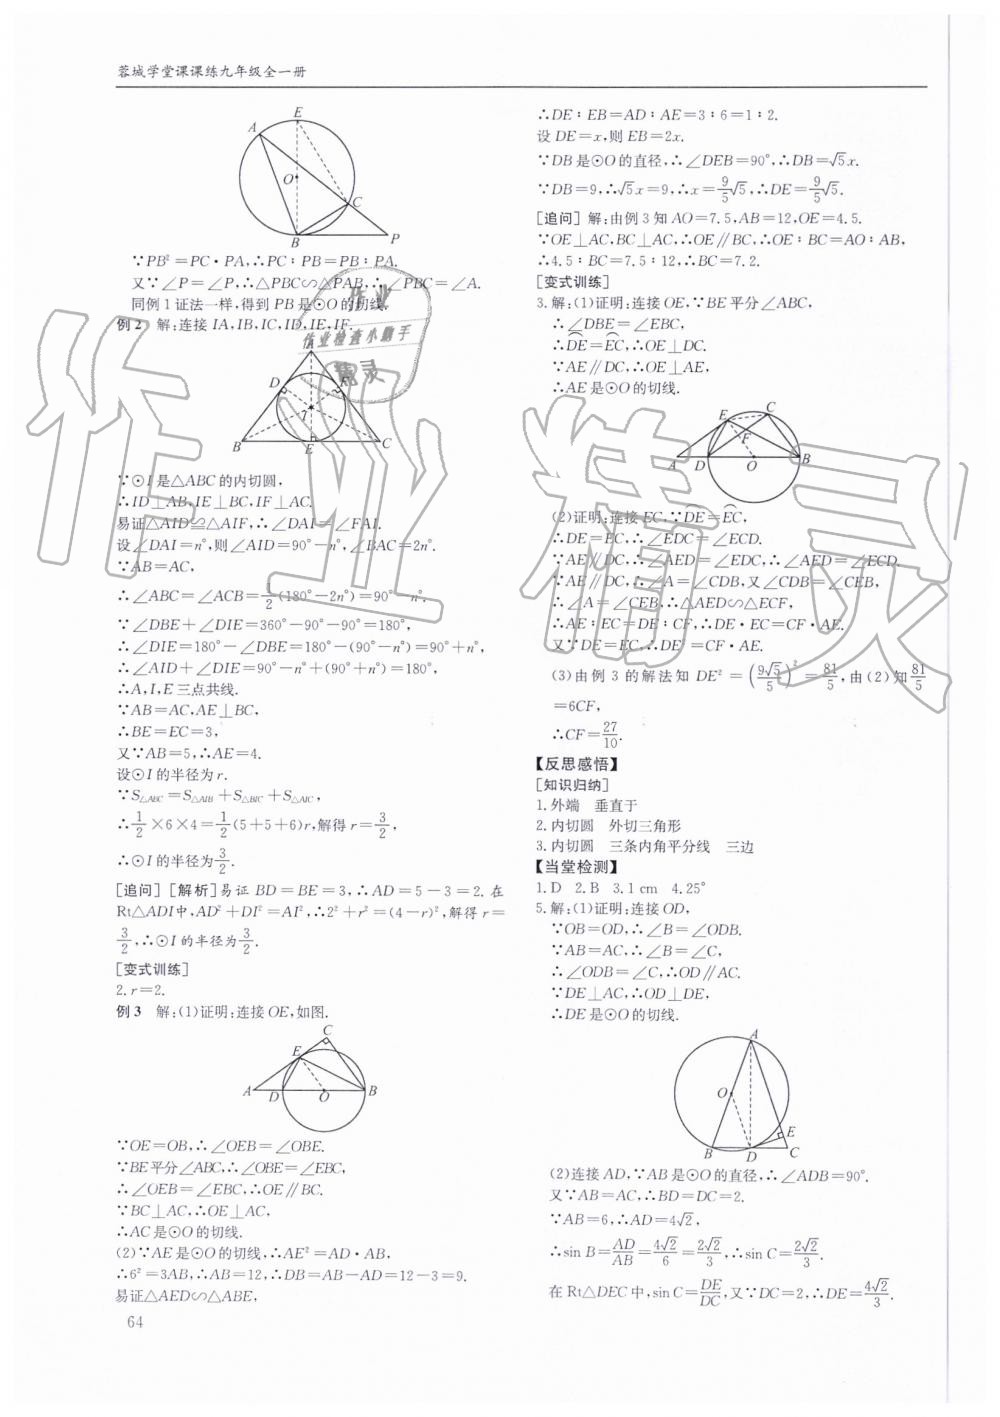 蓉城学堂课课练九年级全一册
E
A
O
C
B
P
∵PB²=PC·PA,∴PC∶PB=PB∶PA.
又∵∠P=∠P,∴△PBC∽△PAB,∴∠PBC=∠A.
同例1证法一样,得到PB是⊙O的切线.
例2 解:连接IA,IB,IC,ID,IE,IF.
A
D
F
I
B
E
C
∵⊙I是△ABC的内切圆,
∴ID⊥AB,IE⊥BC,IF⊥AC.
易证△AID≌△AIF,∴∠DAI=∠FAI.
设∠DAI=n°,则∠AID=90°-n°,∠BAC=2n°.
∵AB=AC,
∴∠ABC=∠ACB=1/2(180°-2n°)=90°-n°.
∵∠DBE+∠DIE=360°-90°-90°=180°,
∴∠DIE=180°-∠DBE=180°-(90°-n°)=90°+n°,
∴∠AID+∠DIE=90°-n°+(90°+n°)=180°,
∴A,I,E三点共线.
∵AB=AC,AE⊥BC,
∴BE=EC=3,
又∵AB=5,∴AE=4.
设⊙I的半径为r.
∵S△ABC=S△AIB+S△BIC+S△AIC,
∴1/2×6×4=1/2(5+5+6)r,解得r=3/2,
∴⊙I的半径为3/2.
[追问] [解析]易证BD=BE=3,∴AD=5-3=2.在
Rt△ADI中,AD²+DI²=AI²,∴2²+r²=(4-r)²,解得r=
3/2,∴⊙I的半径为3/2.
[变式训练]
2.r=2.
例3 解:(1)证明:连接OE,如图.
C
E
A
D
O
B
∵OE=OB,∴∠OEB=∠OBE.
∵BE平分∠ABC,∴∠OBE=∠EBC,
∴∠OEB=∠EBC,∴OE∥BC.
∵BC⊥AC,∴OE⊥AC,
∴AC是⊙O的切线.
(2)∵AE是⊙O的切线,∴AE²=AD·AB,
∴6²=3AB,∴AB=12,∴DB=AB-AD=12-3=9.
易证△AED∽△ABE,
64
∴DE∶EB=AD∶AE=3∶6=1∶2.
设DE=x,则EB=2x.
∵DB是⊙O的直径,∴∠DEB=90°,∴DB=√5x.
∵DB=9,∴√5x=9,∴x=9/5√5,∴DE=9/5√5.
[追问] 解:由例3知AO=7.5,AB=12,OE=4.5.
∵OE⊥AC,BC⊥AC,∴OE∥BC,∴OE∶BC=AO∶AB,
∴4.5∶BC=7.5∶12,∴BC=7.2.
[变式训练]
3.解:(1)证明:连接OE,∵BE平分∠ABC,
∴∠DBE=∠EBC,
∴⌒DE=⌒EC,∴OE⊥DC.
∵AE∥DC,∴OE⊥AE,
∴AE是⊙O的切线.
C
E
F
A
D
O
B
(2)证明:连接EC,∵⌒DE=⌒EC,
∴DE=EC,∴∠EDC=∠ECD.
∵AE∥DC,∴∠AED=∠EDC,∴∠AED=∠ECD.
∵AE∥DC,∴∠A=∠CDB,又∠CDB=∠CEB,
∴∠A=∠CEB,∴△AED∽△ECF,
∴AE∶EC=DE∶CF,∴DE·EC=CF·AE.
又∵DE=EC,∴DE²=CF·AE.
(3)由例3的解法知DE²=(9√5/5)²=81/5,由(2)知81/5
=6CF,
∴CF=27/10.
【反思感悟】
[知识归纳]
1.外端 垂直于
2.内切圆 外切三角形
3.内切圆 三条内角平分线 三边
【当堂检测】
1.D 2.B 3.1 cm 4.25°
5.解:(1)证明:连接OD,
∵OB=OD,∴∠B=∠ODB.
∵AB=AC,∴∠B=∠C,
∴∠ODB=∠C,∴OD∥AC.
∵DE⊥AC,∴OD⊥DE,
∴DE是⊙O的切线.
A
O
E
B
D
C
(2)连接AD,∵AB是⊙O的直径,∴∠ADB=90°.
又∵AB=AC,∴BD=DC=2.
∵AB=6,∴AD=4√2,
∴sin B=AD/AB=4√2/6=2√2/3,∴sin C=2√2/3.
在Rt△DEC中,sin C=DE/DC,又∵DC=2,∴DE=4√2/3.
作业精灵
作业
作业检查小助手
精灵